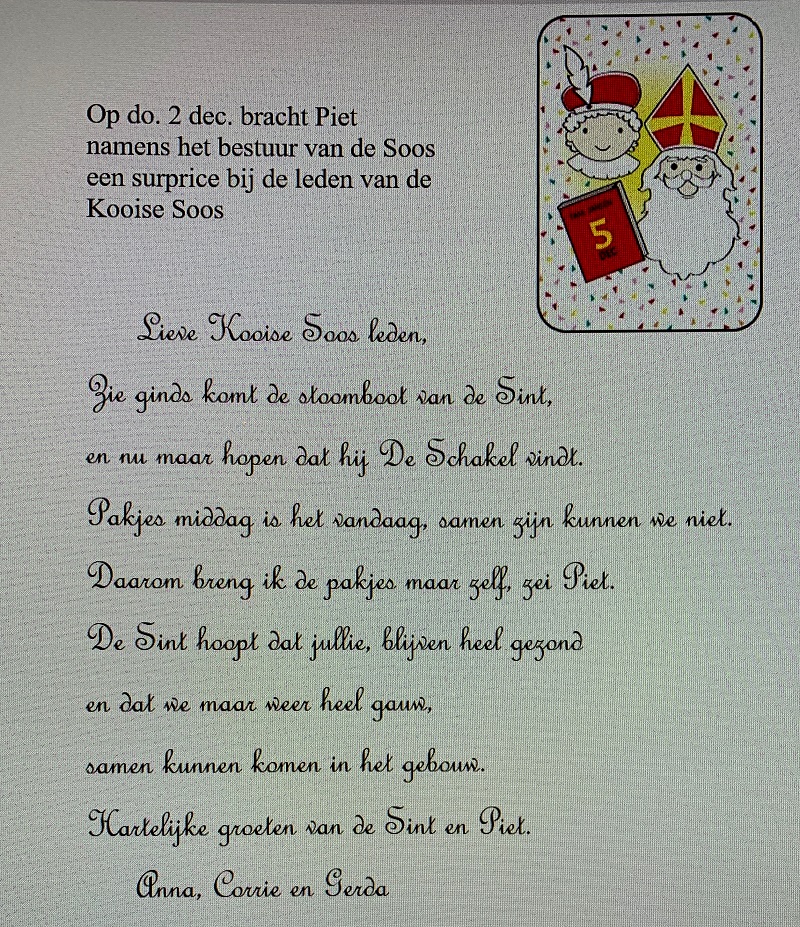 Op do. 2 dec. bracht Piet
namens het bestuur van de Soos
een surprice bij de leden van de
Kooise Soos
5
DEC
Lieve Kooise Soos leden,
Zie ginds komt de stoomboot van de Sint,
en nu maar hopen dat hij De Schakel vindt.
Pakjes middag is het vandaag, samen zijn kunnen we niet.
Daarom breng ik de pakjes maar zelf, zei Piet.
De Sint hoopt dat jullie, blijven heel gezond
en dat we maar weer heel gauw,
samen kunnen komen in het gebouw.
Hartelijke groeten van de Sint en Piet.
Anna, Corrie en Gerda